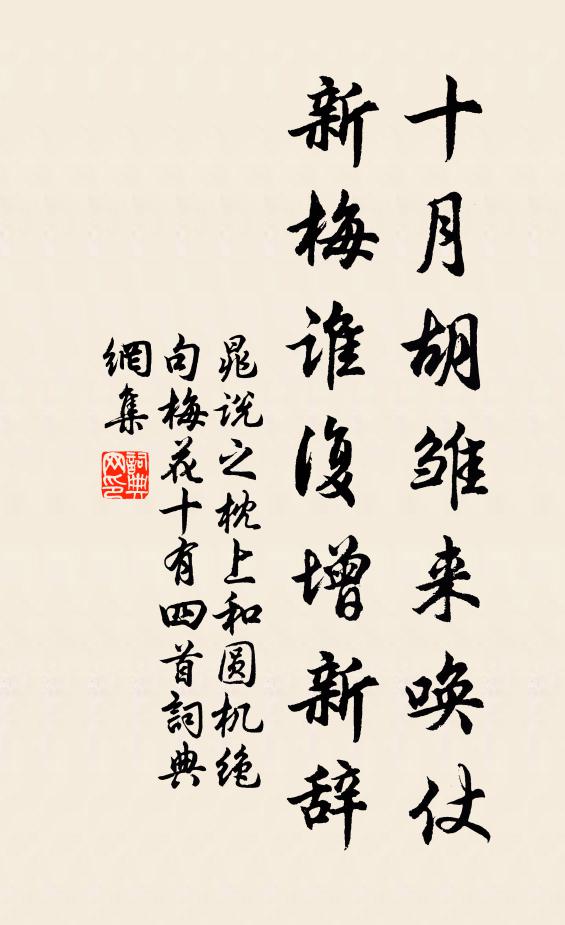 十月胡雏来唤仗
新梅谁復增新辞
晁说之枕上和圆机绝
句梅花十有四首詞典
網集
詞典
网印